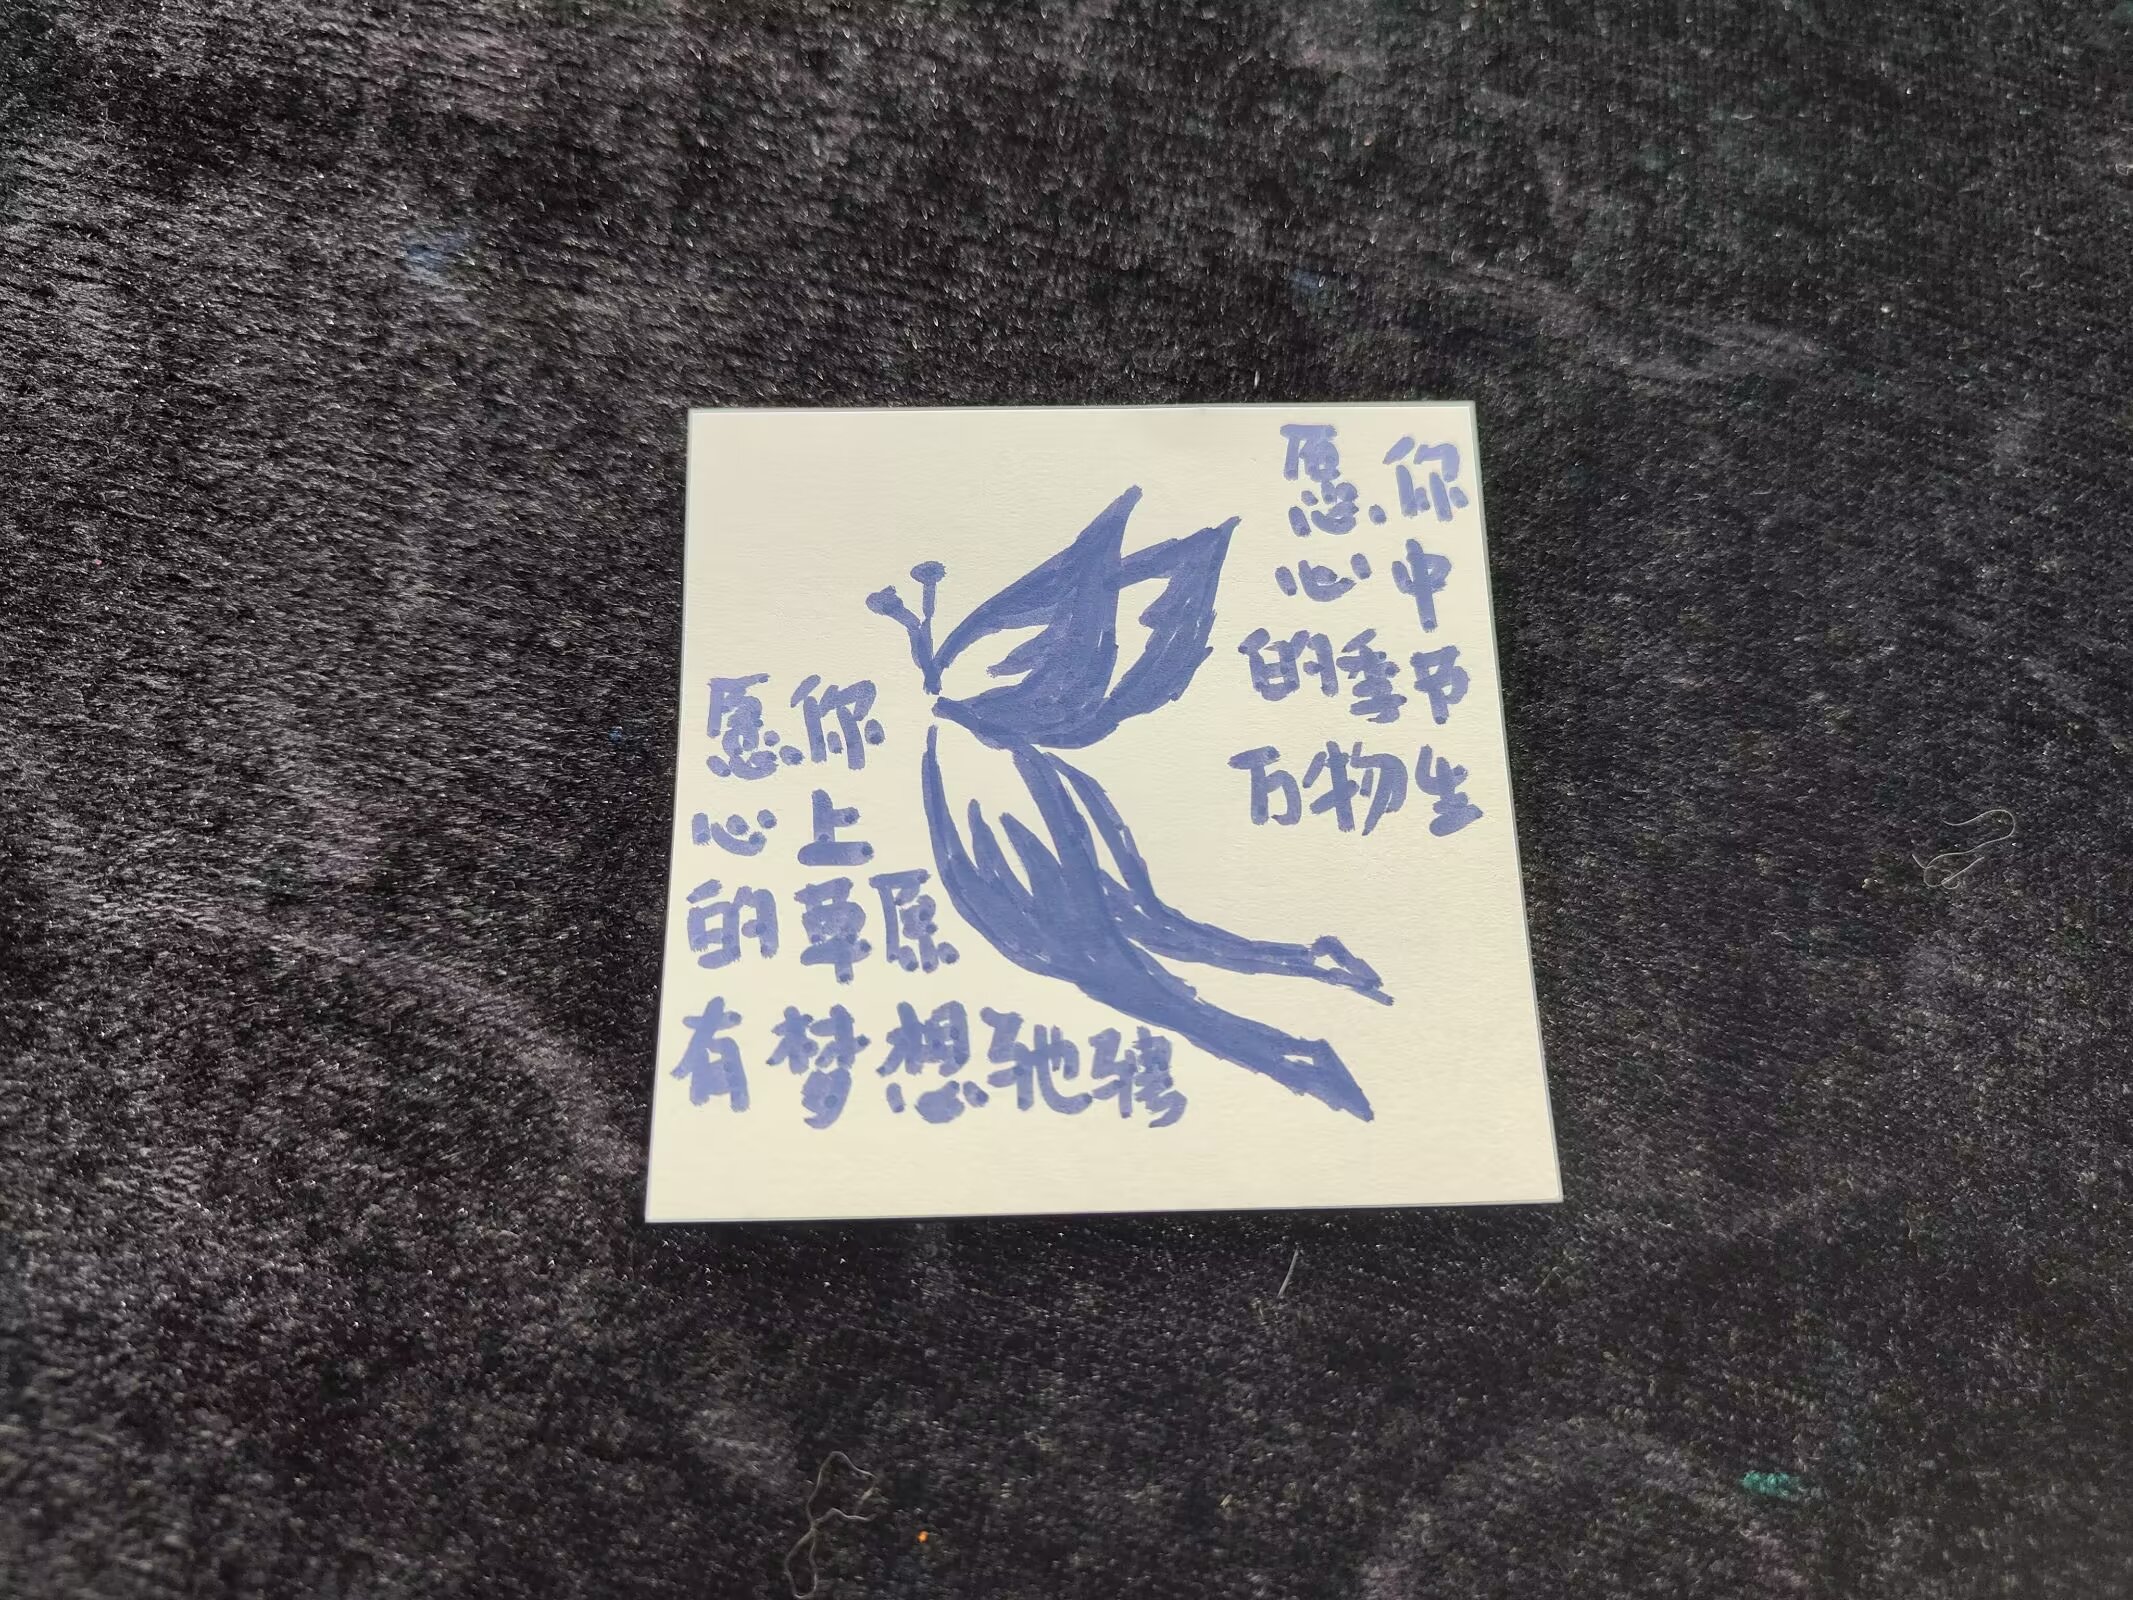 愿你
心中
的季节
万物生
愿你
心上
的草原
有梦想驰骋